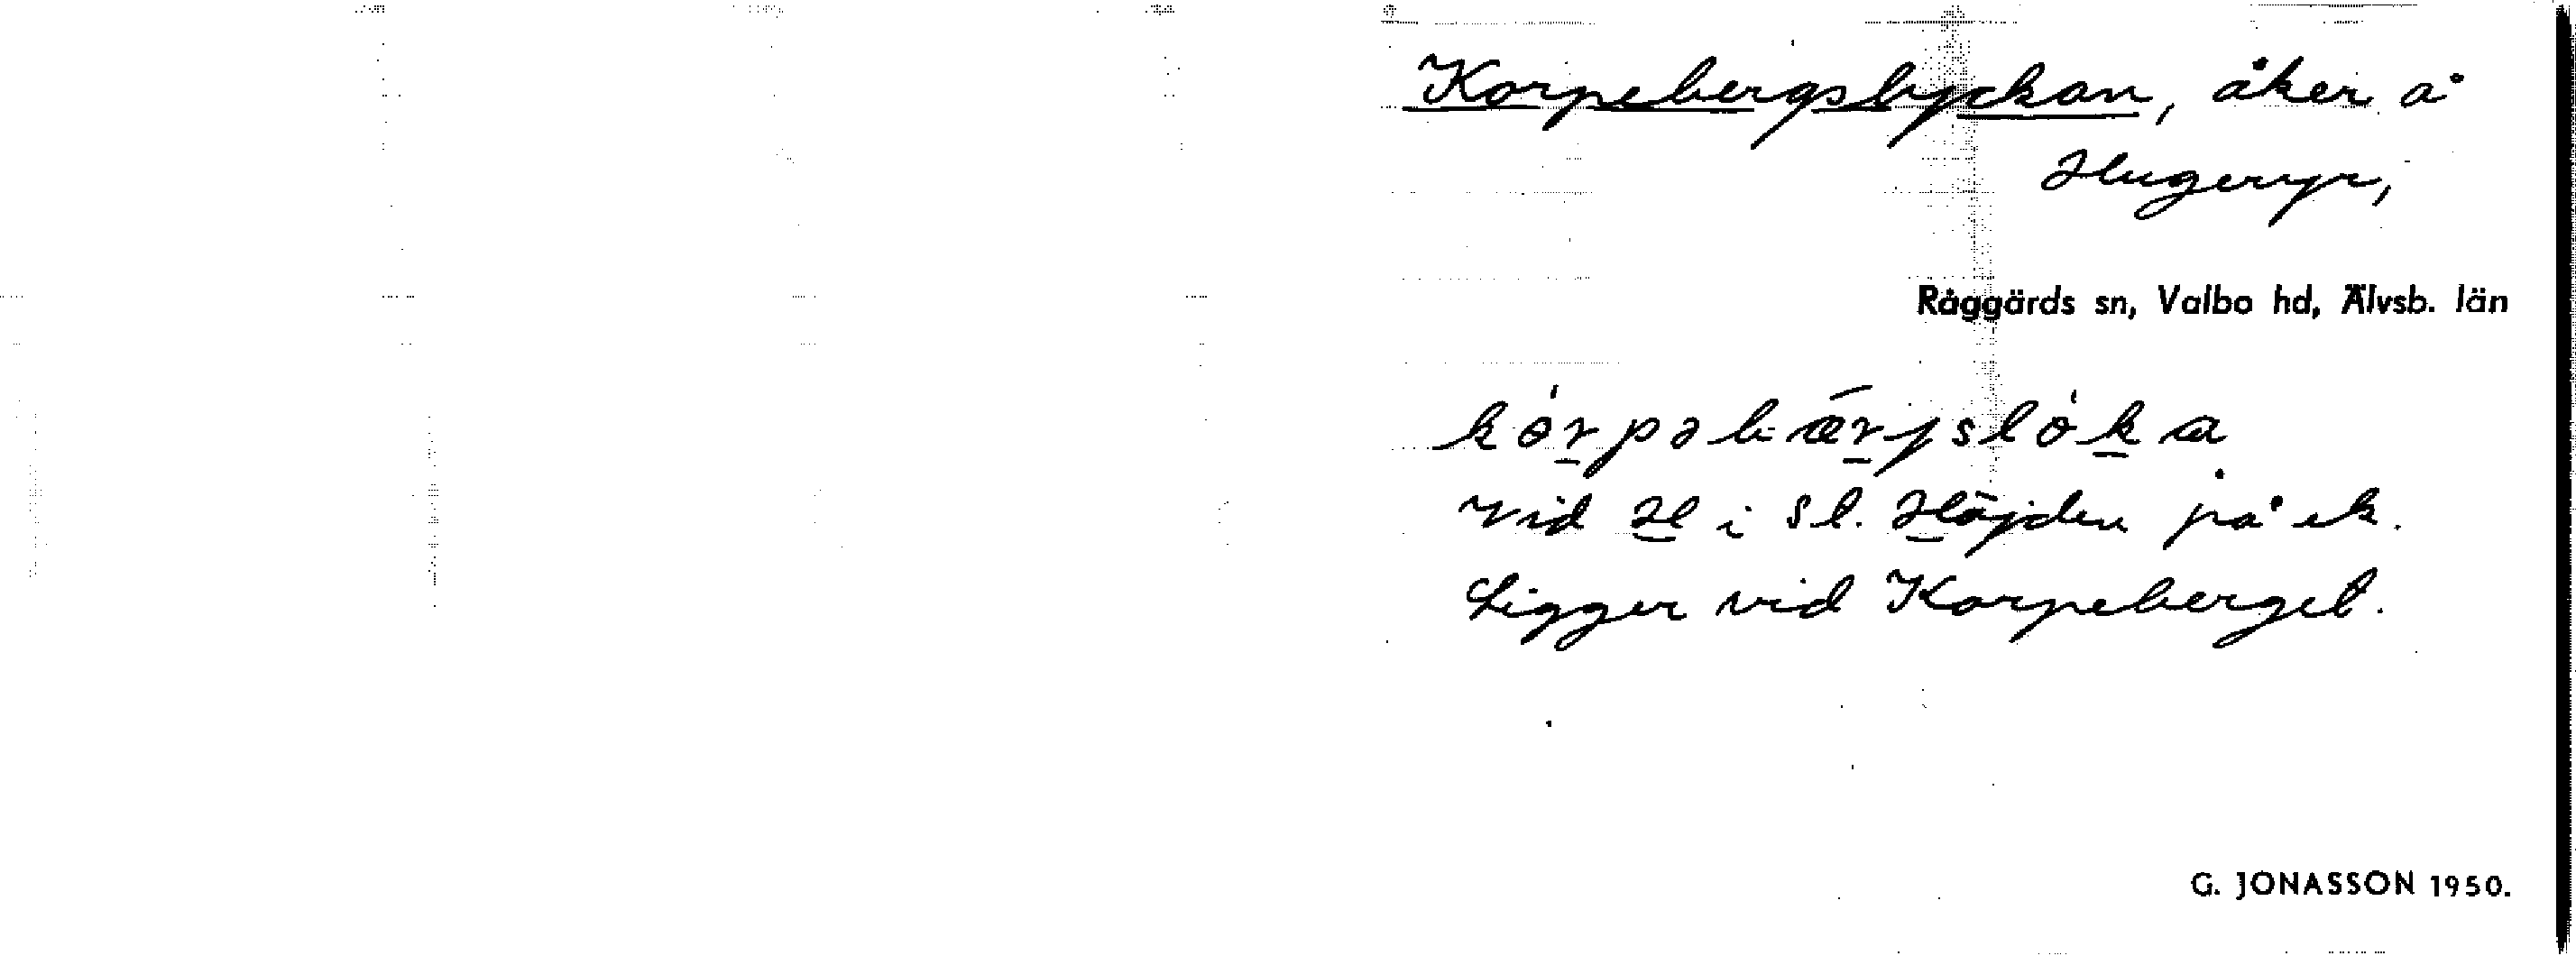 Korpebergslyckan, åker å
Hugeryr,
Råggärds sn, Valbo hd, Älvsb. län
kórpəbǽrjslóka
vid H i Sl. Höjden på ek.
Ligger vid Korpeberget.
G. JONASSON 1950.